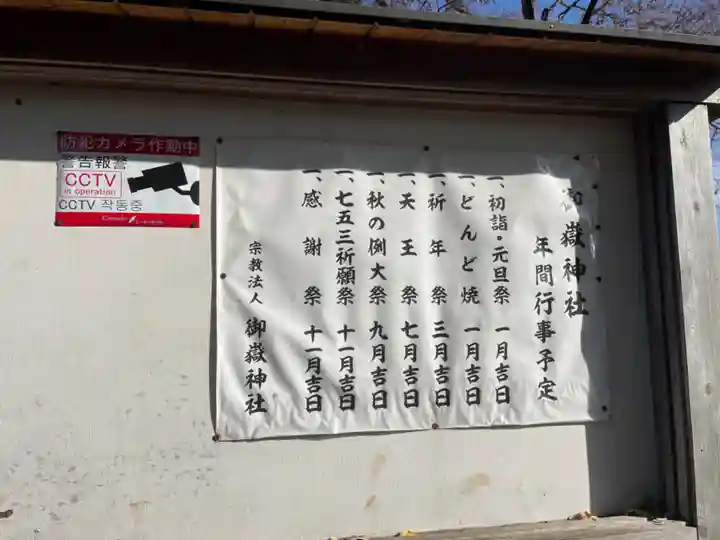 防犯カメラ作動中
警告報警
CCTV
in operation
CCTV 작동중
御嶽神社
年間行事予定
一、初詣・元旦祭 一月吉日
一、どんど焼 一月吉日
一、祈年祭 三月吉日
一、天王祭 七月吉日
一、秋の例大祭 九月吉日
一、七五三祈願祭 十一月吉日
一、感謝祭 十一月吉日
宗教法人 御嶽神社